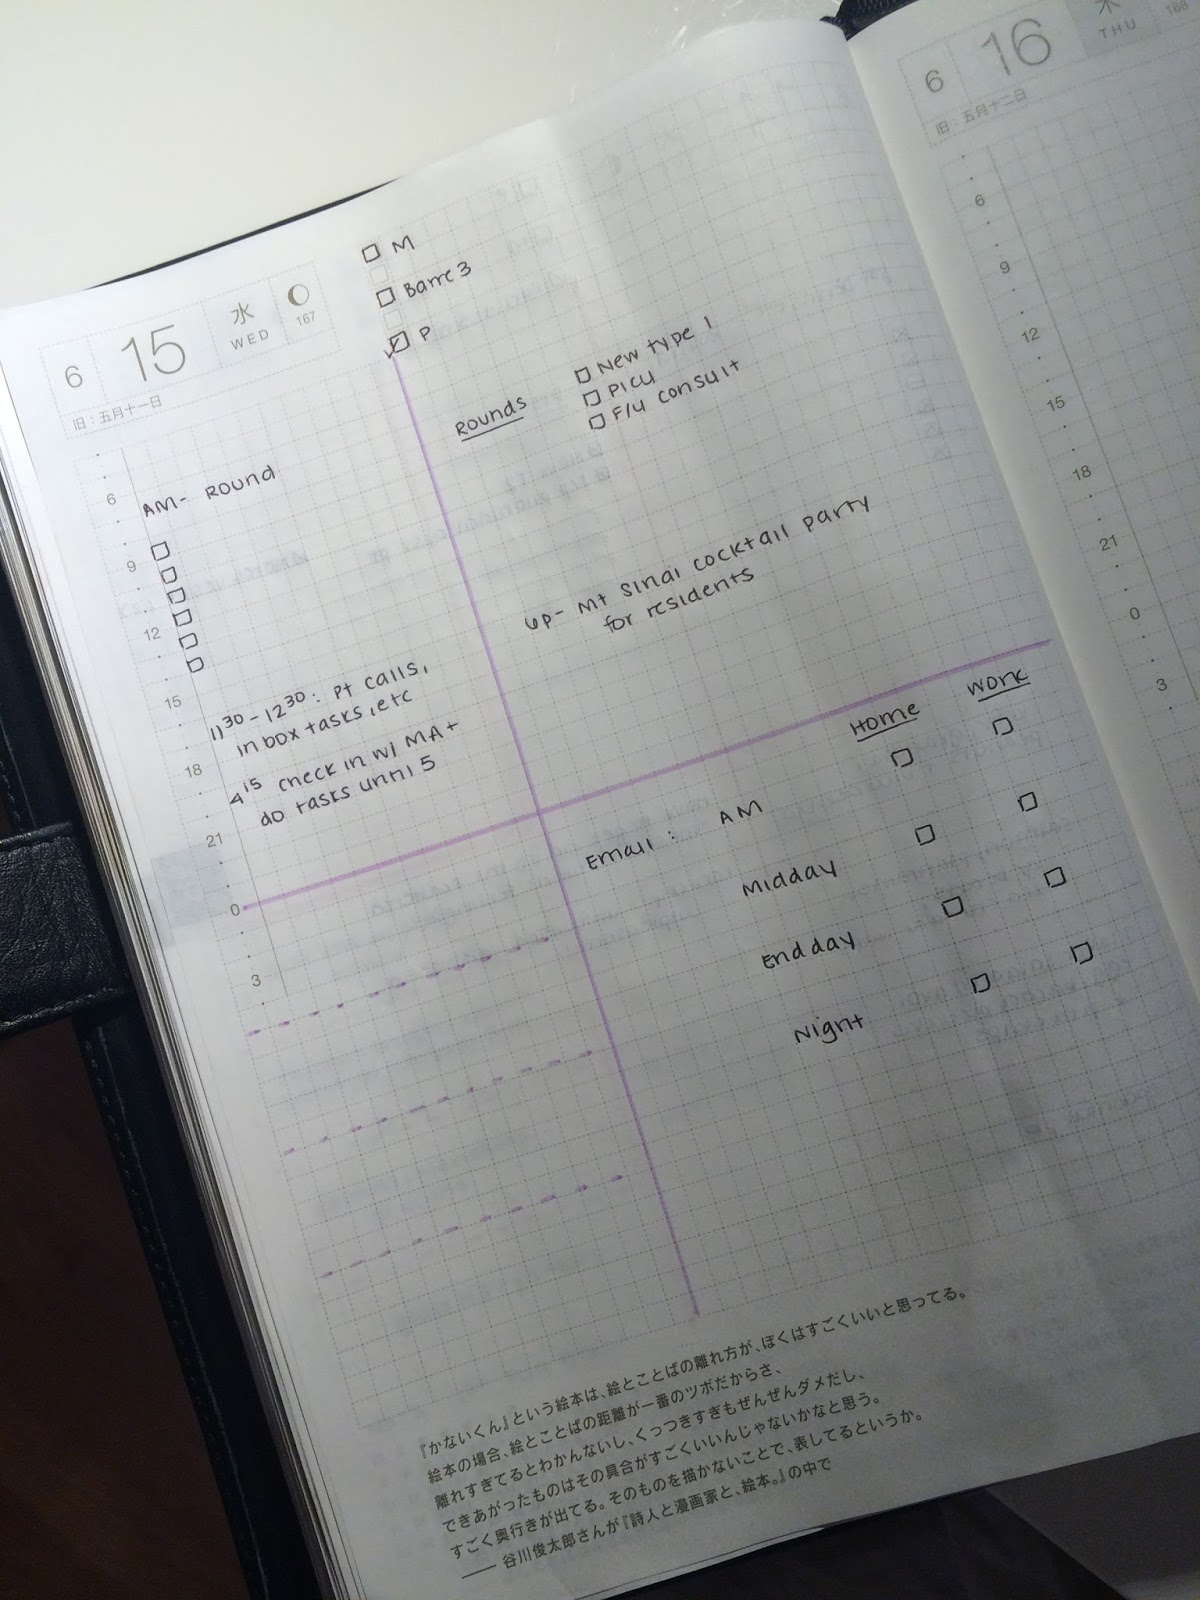 6 15 水 WED 167
旧:五月十一日
M
Barre 3
P
6
9
12
15
18
21
0
3
AM- Round
11³⁰-12³⁰: Pt calls,
inbox tasks, etc
4¹⁵ check in w/ MA +
do tasks until 5
Rounds
New type 1
PICU
F/U consult
6p- Mt Sinai cocktail party
for residents
Home Work
Email: AM
Midday
End day
Night
『かないくん』という絵本は、絵とことばの離れ方が、ぼくはすごくいいと思ってる。
絵本の場合、絵とことばの距離が一番のツボだからさ、
離れすぎてるとわかんないし、くっつきすぎもぜんぜんダメだし、
できあがったものはその具合がすごくいいんじゃないかなと思う。
すごく奥行きが出てる。そのものを描かないことで、表してるというか。
——谷川俊太郎さんが『詩人と漫画家と、絵本。』の中で
6 16 木 THU 168
旧:五月十二日
6
9
12
15
18
21
0
3